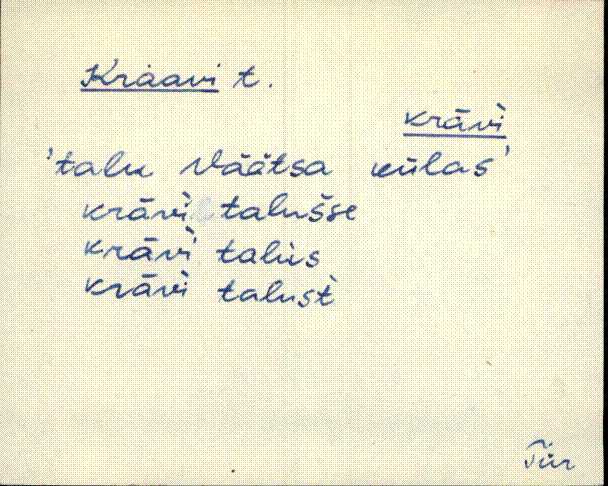 Kraavi t.
krāvì
'talu Väätsa külas'
krāvì talušse
krāvì talùs
krāvì talust̀
Tür